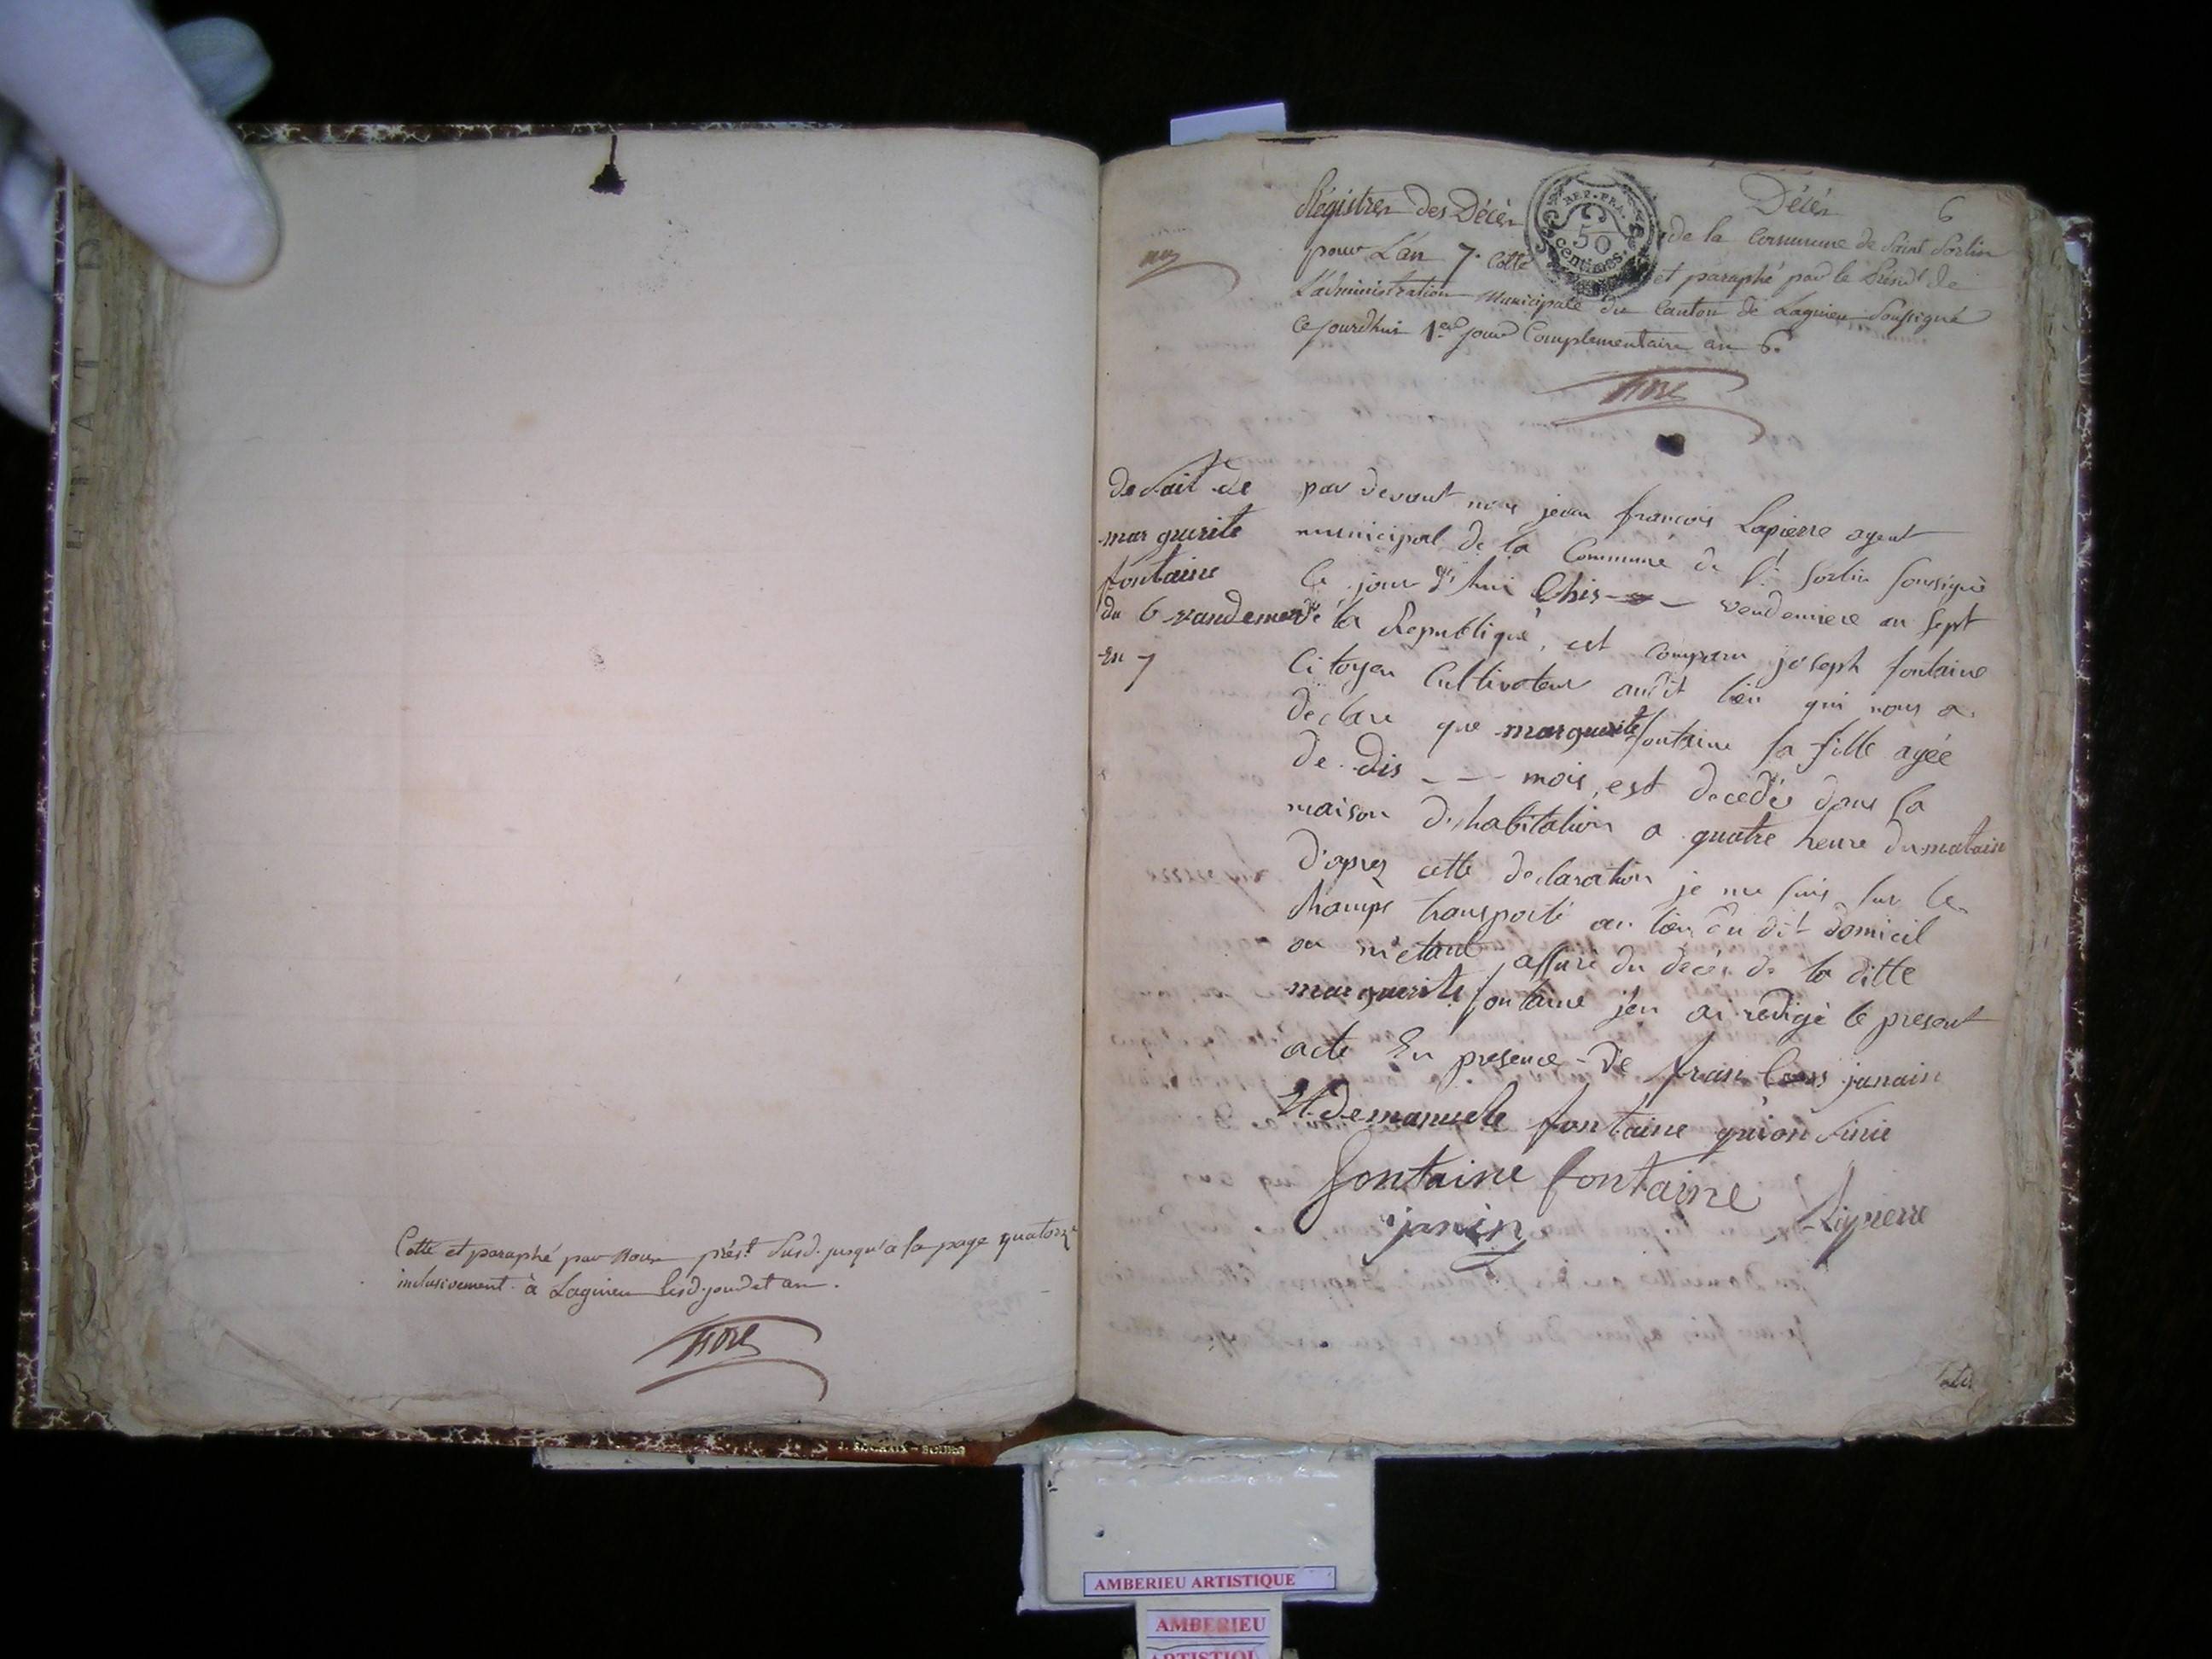 Cotté et paraphé par Nous prést. susd. jusqu'à la page quatorze
inclusivement. à Lagnieu lesd. jour et an.
Décès 6
Régistres des Décès de la Commune de Saint Sorlin
pour L'an 7. Cotté et paraphé par le Présidt de
L'administration Municipale du Canton de Lagnieu Soussigné
Cejourdhui 1er jour Complementaire an 6.
REP. FRA.
50
centimes.
de sait de
marguerite
fontaine
du 6 vandemer
En 7
par devant nous jean francois Lapierre agent
municipal de la Commune de St. Sorlin soussigné
Ce jour d'hui vendemiere an sept
de la Republique, est comparu joseph fontaine
Citoyen Cultivateur audit lieu qui nous a
declare que marguerite fontaine sa fille agée
de dis - - - mois, est decedée dans sa
maison d'habitation a quatre heure du mataiu
d'apres cette declaration je me suis sur le
champs transporté au lieu du dit domicil
ou m'etant assuré du decés de la ditte
marguerite fontaine j'en ai redigé le present
acte En presence de janain
Et de manuele fontaine qui on sinié
fontaine fontaine
janin Lapierre
J. BOURG
AMBERIEU ARTISTIQUE
AMBERIEU
ARTISTIQUE